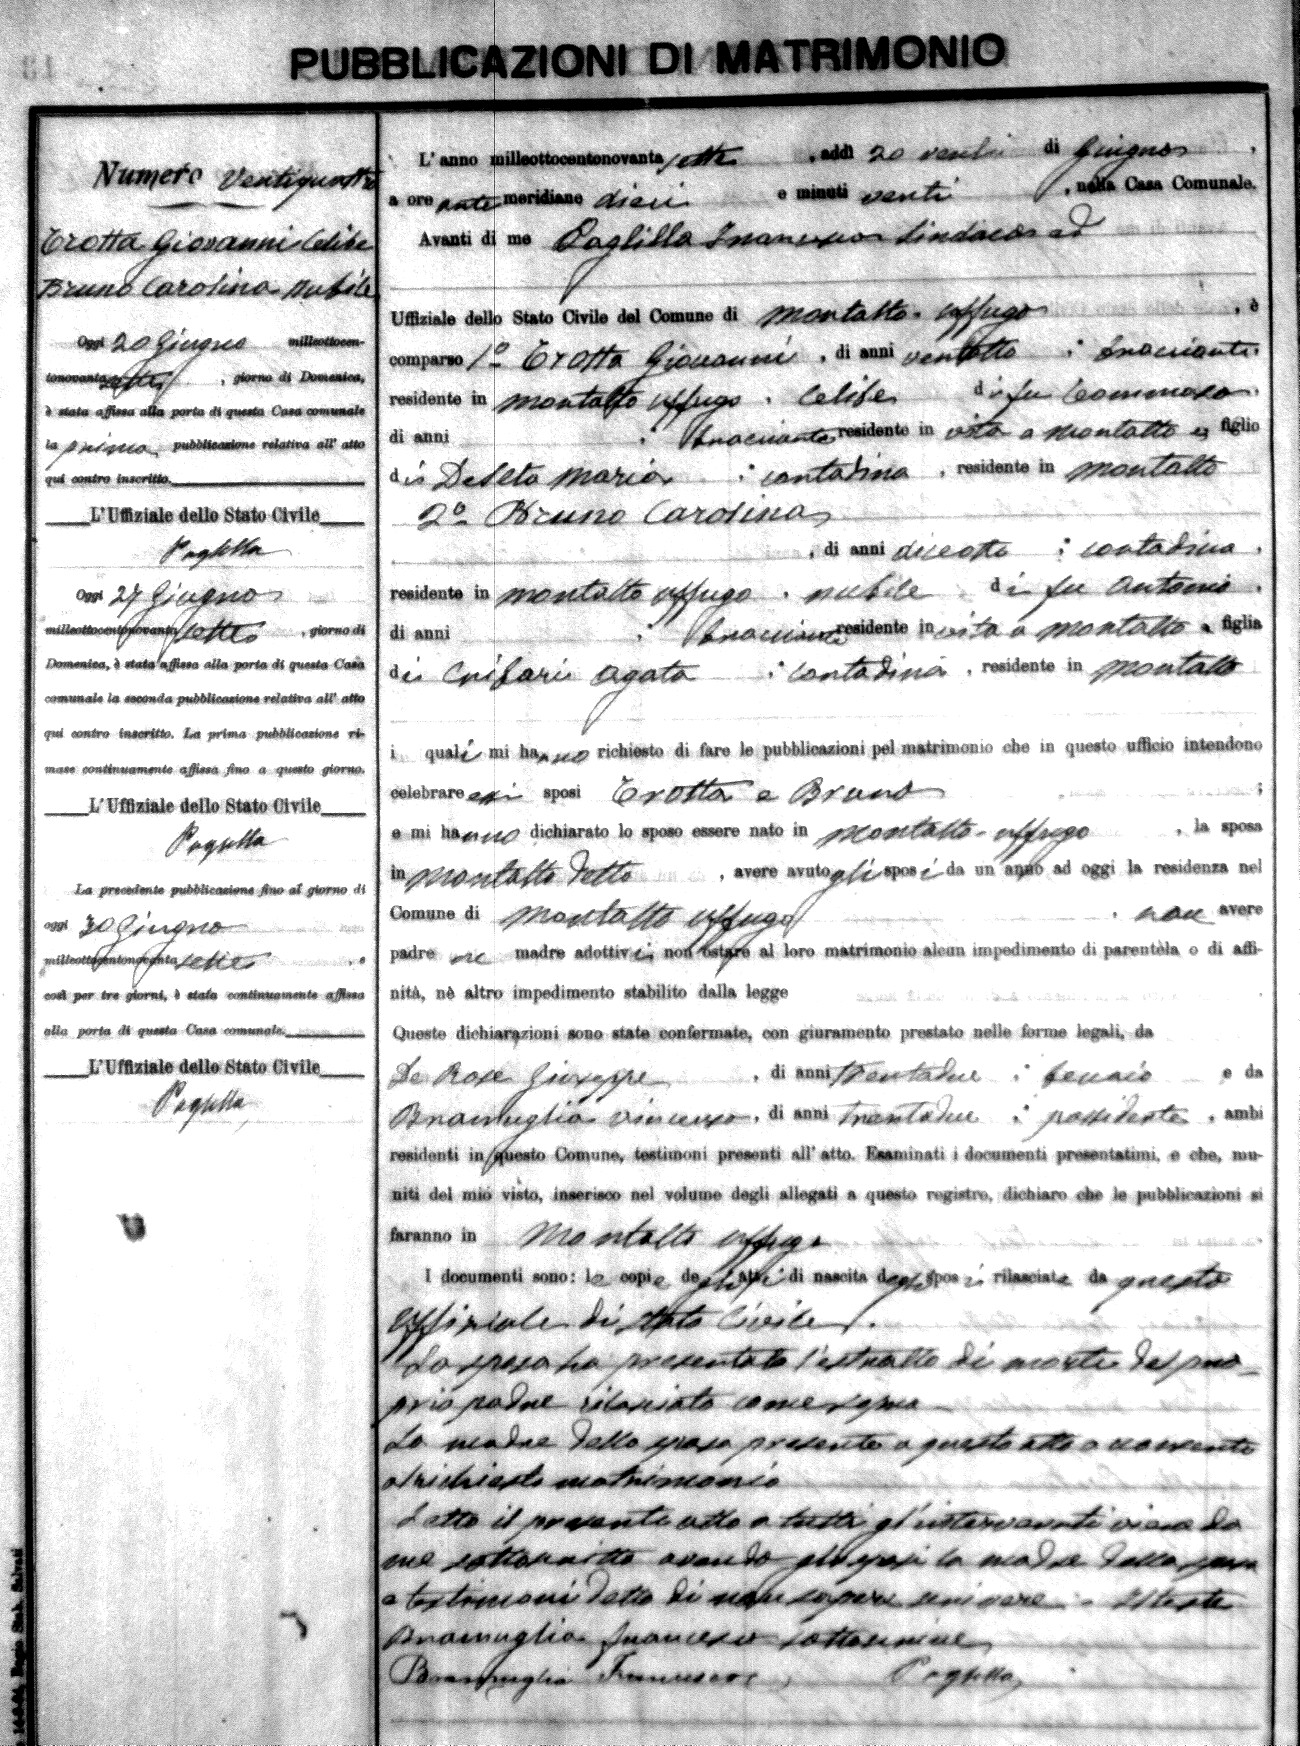 PUBBLICAZIONI DI MATRIMONIO
Numero Ventiquattro
Trotta Giovanni Celibe
Bruno Carolina Nubile
Oggi 20 Giugno milleottocen-
tonovantasette, giorno di Domenica,
è stata affissa alla porta di questa Casa comunale
la prima pubblicazione relativa all' atto
qui contro inscritto.
L'Uffiziale dello Stato Civile
Paglilla
Oggi 27 Giugno
milleottocentonovantasette, giorno di
Domenica, è stata affissa alla porta di questa Casa
comunale la seconda pubblicazione relativa all' atto
qui contro inscritto. La prima pubblicazione ri-
mase continuamente affissa fino a questo giorno.
L'Uffiziale dello Stato Civile
Paglilla
La precedente pubblicazione fino al giorno di
oggi 30 Giugno
milleottocentonovantasette, e
così per tre giorni, è stata continuamente affissa
alla porta di questa Casa comunale.
L'Uffiziale dello Stato Civile
Paglilla
L' anno milleottocentonovantasette, addì 20 venti di Giugno,
a ore antemeridiane dieci e minuti venti, nella Casa Comunale.
Avanti di me Paglilla Francesco Sindaco ed
Uffiziale dello Stato Civile del Comune di Montalto Uffugo, è
comparso 1º Trotta Giovanni, di anni ventotto; bracciante
residente in Montalto Uffugo. Celibe di fu Tommaso.
di anni ; bracciante residente in vita a Montalto e figlio
di Deseta Maria; contadina, residente in Montalto
2º Bruno Carolina
, di anni diciotto; contadina,
residente in Montalto Uffugo. nubile di fu Antonio.
di anni ; bracciante residente in vita a Montalto e figlia
di Crifari Agata; contadina, residente in Montalto
i quali mi hanno richiesto di fare le pubblicazioni pel matrimonio che in questo ufficio intendono
celebrare essi sposi Trotta e Bruno ;
e mi hanno dichiarato lo sposo essere nato in Montalto Uffugo, la sposa
in Montalto detto, avere avuto gli sposi da un anno ad oggi la residenza nel
Comune di Montalto Uffugo. non avere
padre ne madre adottivi; non ostare al loro matrimonio alcun impedimento di parentèla o di affi-
nità, nè altro impedimento stabilito dalla legge
Queste dichiarazioni sono state confermate, con giuramento prestato nelle forme legali, da
De Rose Giuseppe, di anni trentadue; e da
Bramuglia Vincenzo, di anni trentadue; possidente, ambi
residenti in questo Comune, testimoni presenti all' atto. Esaminati i documenti presentatimi, e che, mu-
niti del mio visto, inserisco nel volume degli allegati a questo registro, dichiaro che le pubblicazioni si
faranno in Montalto Uffugo
I documenti sono: le copie degli atti di nascita degli sposi rilasciate da questo
Uffiziale di stato Civile.
La sposa ha presentato l'estratto di morte del pro-
prio padre rilasciato come sopra
La madre della sposa presente a questo atto acconsente
al richiesto matrimonio
Letto il presente atto a tutti gl'intervenuti viene da
me sottoscritto avendo gli sposi la madre della sposa
e testimoni detto di non sapere scrivere.
Bramuglia Francesco
Bramuglia Francesco Paglilla